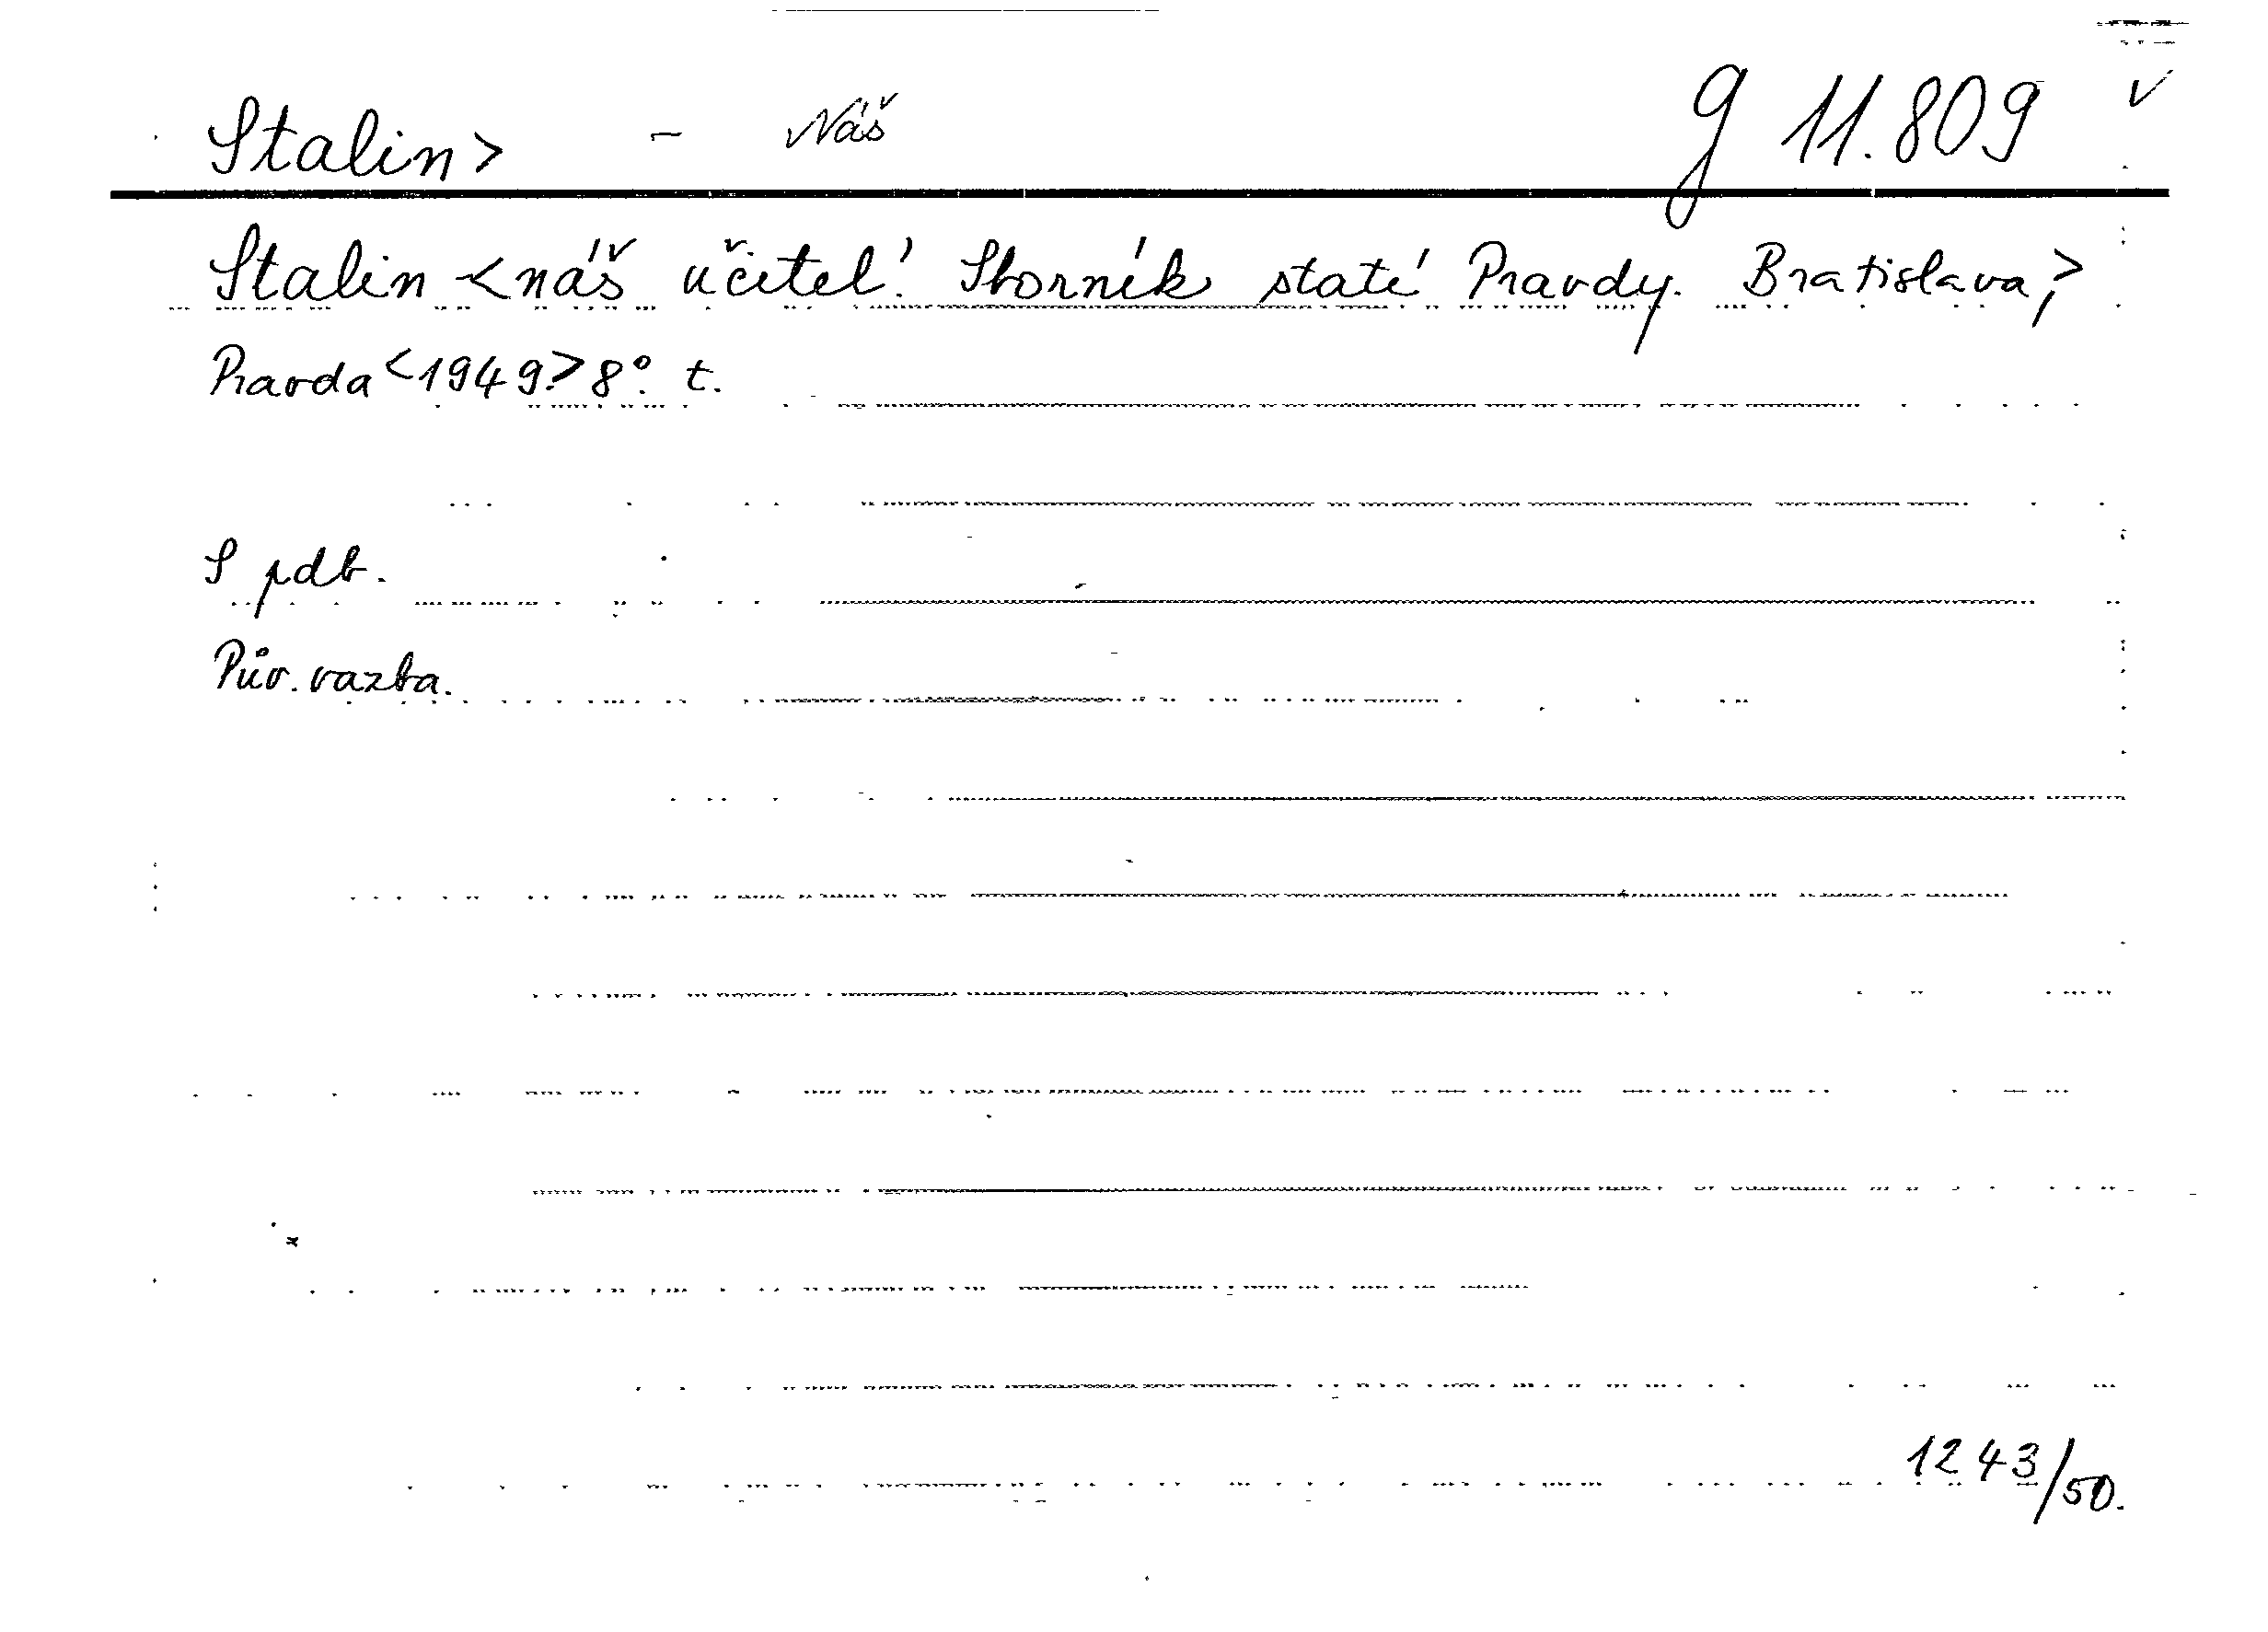 Stalin> - Náš g 11.809 v
Stalin <náš učitel'. Sborník statí Pravdy. Bratislava,>
Pravda <1949.> 8°. t.
S pdb.
Pův. vazba.
1243/50.